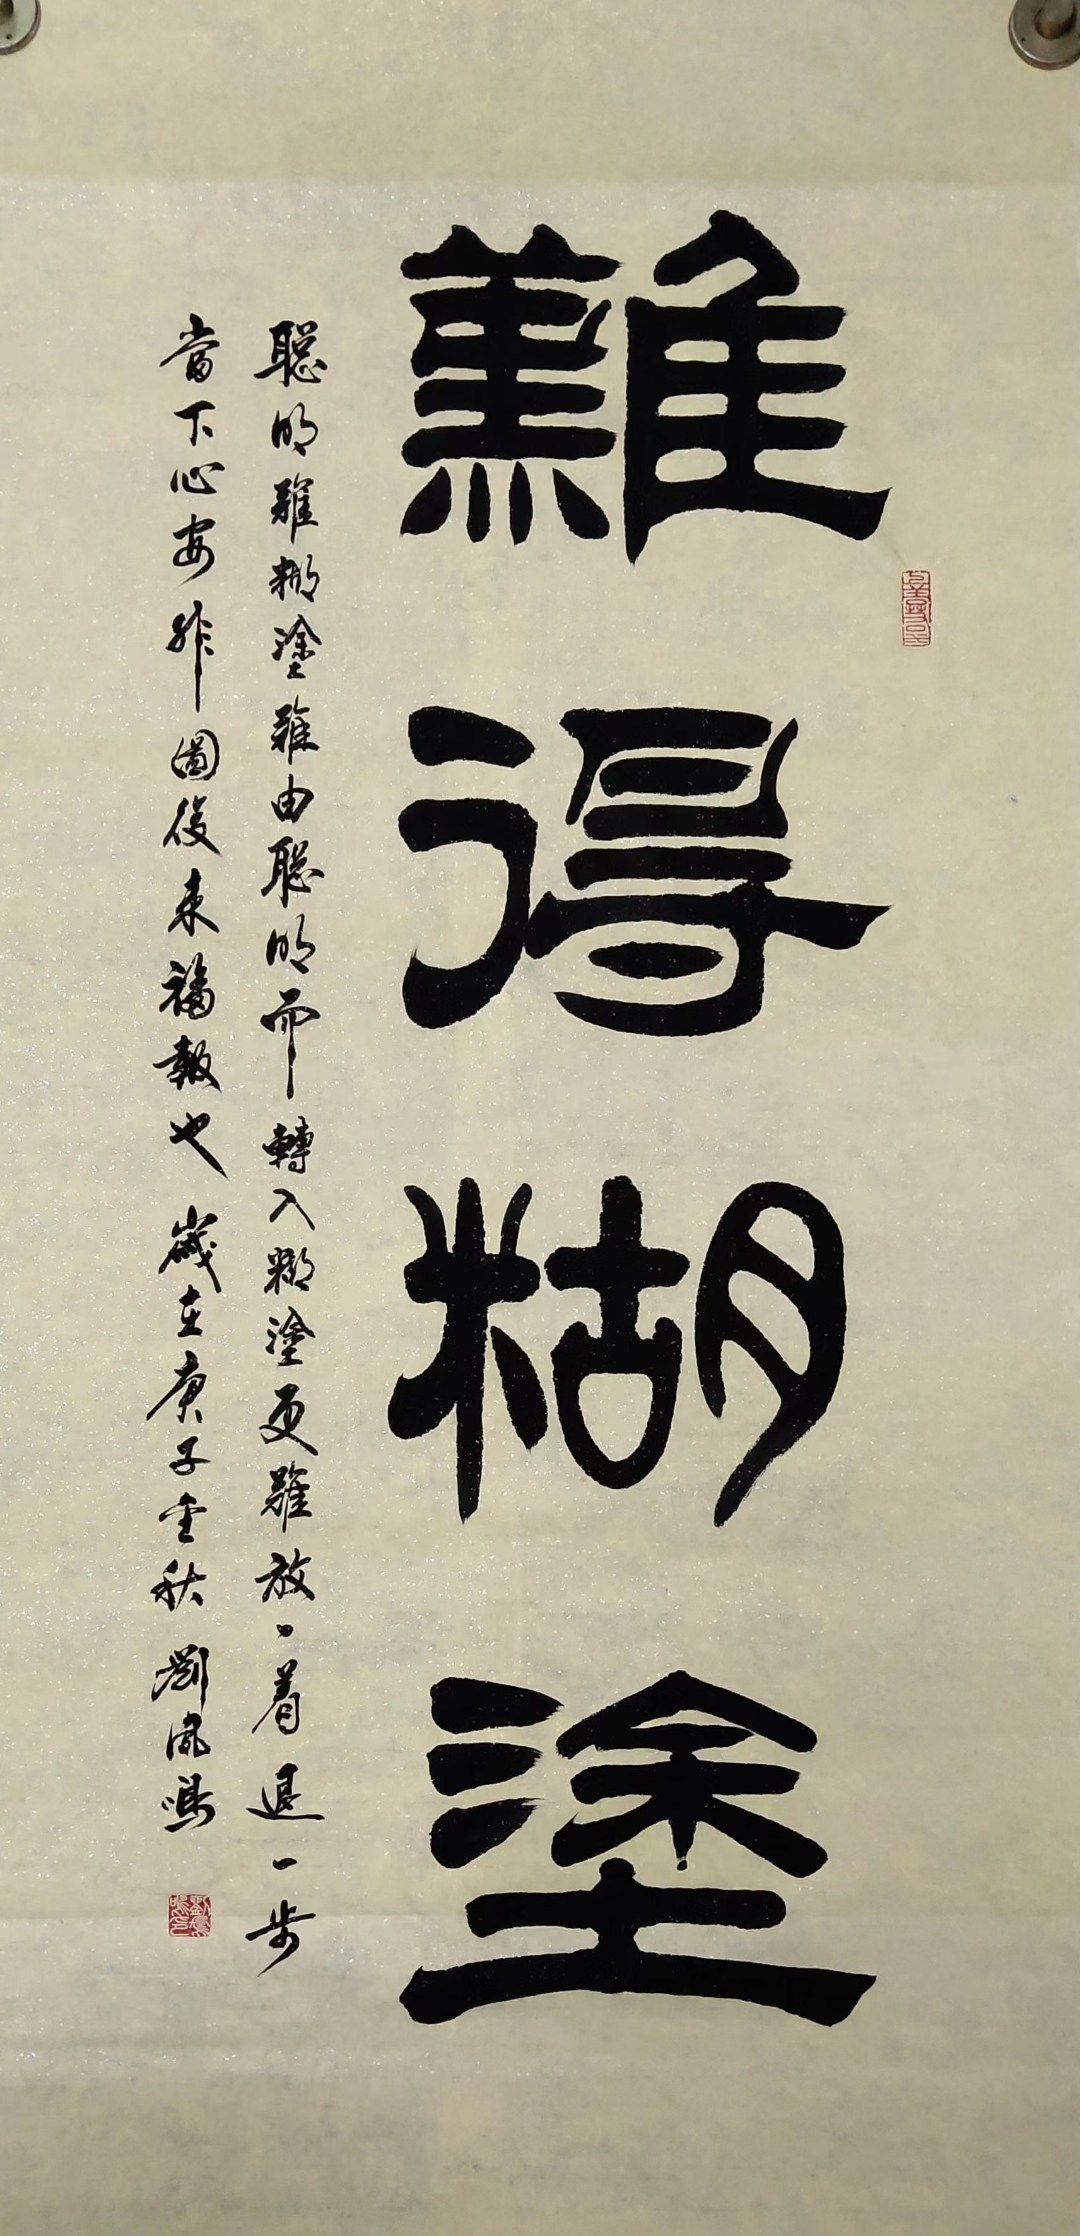 難得糊塗
聡明難糊塗難由聡明而轉入糊塗更難放〻着退一步
當下心安非圖後來福報也 歲在庚子金秋 劉鳳鳴